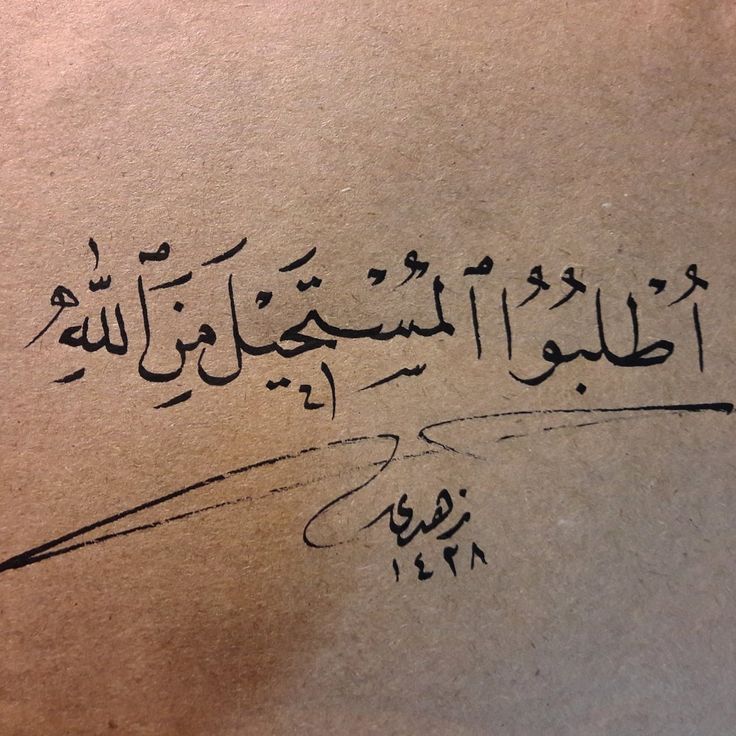 اُطْلُبُوُا ٱلْمُسْتَحِيْلَ مِنَ ٱللّٰهِ
زهدي
١٤٣٨